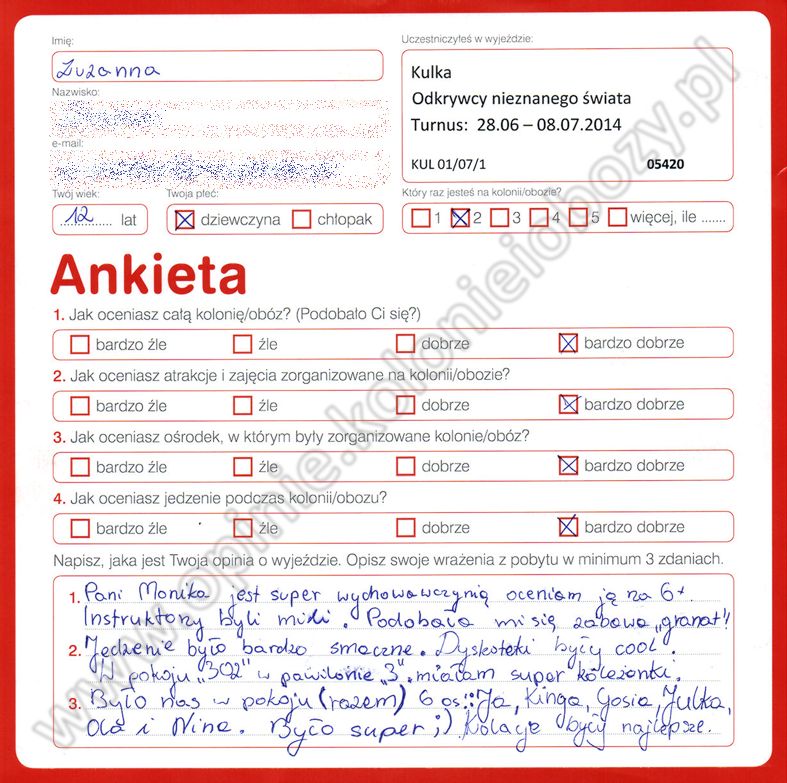 Imię:
Zuzanna
Nazwisko:
e-mail:
Twój wiek:
12 lat
Twoja płeć:
dziewczyna chłopak
Uczestniczyłeś w wyjeździe:
Kulka
Odkrywcy nieznanego świata
Turnus: 28.06 – 08.07.2014
KUL 01/07/1 05420
Który raz jesteś na kolonii/obozie?
1 2 3 4 5 więcej, ile .......
Ankieta
1. Jak oceniasz całą kolonię/obóz? (Podobało Ci się?)
bardzo źle źle dobrze bardzo dobrze
2. Jak oceniasz atrakcje i zajęcia zorganizowane na kolonii/obozie?
bardzo źle źle dobrze bardzo dobrze
3. Jak oceniasz ośrodek, w którym były zorganizowane kolonie/obóz?
bardzo źle źle dobrze bardzo dobrze
4. Jak oceniasz jedzenie podczas kolonii/obozu?
bardzo źle źle dobrze bardzo dobrze
Napisz, jaka jest Twoja opinia o wyjeździe. Opisz swoje wrażenia z pobytu w minimum 3 zdaniach.
1. Pani Monika jest super wychowawczynią oceniam ją na 6+.
Instruktorzy byli mili. Podobała mi się zabawa „granat"!
2. Jedzenie było bardzo smaczne. Dyskoteki były cool.
W pokoju „302" w pawilonie „3" miałam super koleżanki.
3. Było nas w pokoju (razem) 6 os.: Ja, Kinga, Gosia, Julka,
Ola i Nina. Było super ;) Kolacje były najlepsze.
www.opinie.kolonieiobozy.pl